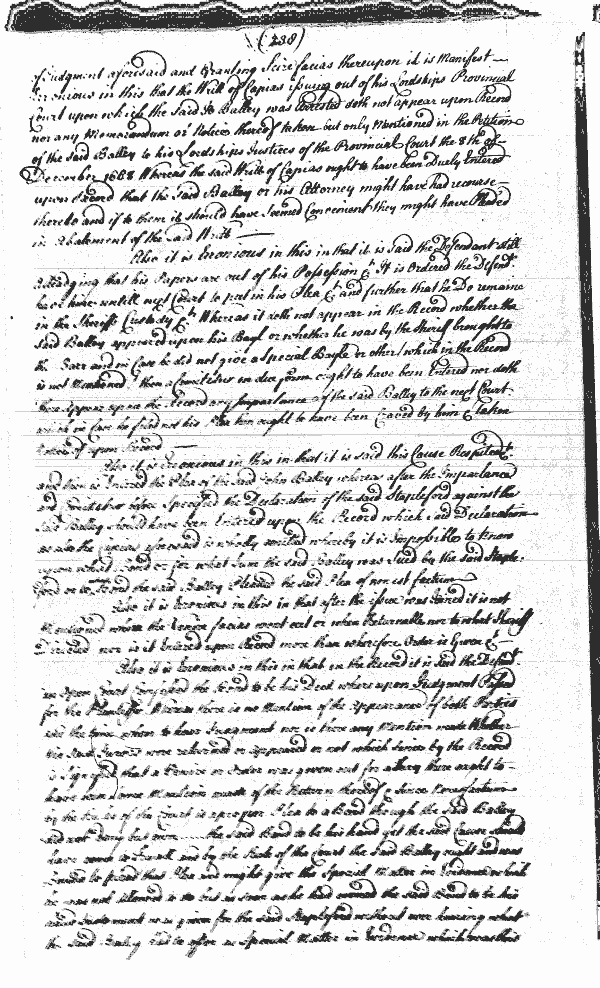 (238)
of Judgment aforesaid and Granting Scire facias thereupon it is Manifest
Eronious in this that the Writt of Capias issuing out of his Lordships Provincial
Court upon which the Said Jo Balley was arrested doth not appear upon Record
nor any Memorandum or Notice thereof taken but only Mentioned in the Petition
of the Said Balley to his Lordships Justices of the Provincial Court the 8th of
December 1668 Whereas the said Writt of Capias ought to have been Duely Entered
upon Record that the Said Balley or his Attorney might have had recourse
thereto and if to them it should have Seemed Convenient they might have Pleaded
in Abatement of the Said Writt
Also it is Eronious in this in that it is said the Defendant still
alledging that his Papers are out of his Possession &c It is Ordered the Defendt
have time untill next Court to put in his Plea &c and further that he Do remaine
in the Sheriffs Custody &c Whereas it doth not appear in the Record whether the
said Balley appeared upon his Bayl or whether he was by the Sheriff brought to
the Barr and in Case he did not give a special Bayle or other which in the Record
is not Mentioned then a Comittitur in due form ought to have been Entered nor doth
there appear upon the Record any Imparlance of the said Balley to the next Court
which in Case he filed not his Plea then ought to have been Craved by him & taken
notice of upon Record
Also it is Eronious in this in that it is said this Cause Respited &c
and then is Entered the Plea of the Said John Balley whereas after the Imparlance
and Comittitur before Specified the Declaration of the said Stapleford against the
Said Balley should have been Entered upon the Record which said Declaration
as also the Capias aforesaid is wholly omitted whereby it is Impossible to know
upon what Bond or for what Sume the said Balley was Sued by the said Staple-
ford or to what Bond the said Balley Pleaded the said Plea of non est factum
Also it is Eronious in this in that after the issue was Joined it is not
Mentioned where the Venire facias went out or when Returnable nor to what Sheriff
Directed nor is it Entered upon Record more than wherefore Order is Given &c
Also it is Eronious in this in that in the Record it is Said the Defendt
in Open Court Confessed the Bond to be his Deed where upon Judgment Passed
for the Plantiffe Whereas there is no Mention of the appearance of both Parties
att the time when to have Judgment nor is there any Mention made Whether
the Said Jurors were returned or appeared or not which Seems by the Record
is Signified that a Venire or Order was given out for a Jury there ought to
have been some Mention made of the Return thereof & Since non est factum
by the Rules of the Court is a proper Plea to a Bond though the Said Balley
did not Deny but own the said Bond to be his hand yet the said Cause should
have come to Tryall and by the Rule of the Court the Said Balley might
that Plea and might give the Special Matter in Evidence which
he was not allowed to do but in soon as he had owned the said Bond to be his
Judgment was given for the said Stapleford without ever hearing what
the Said Balley had to offer as Special Matter in Evidence which was this